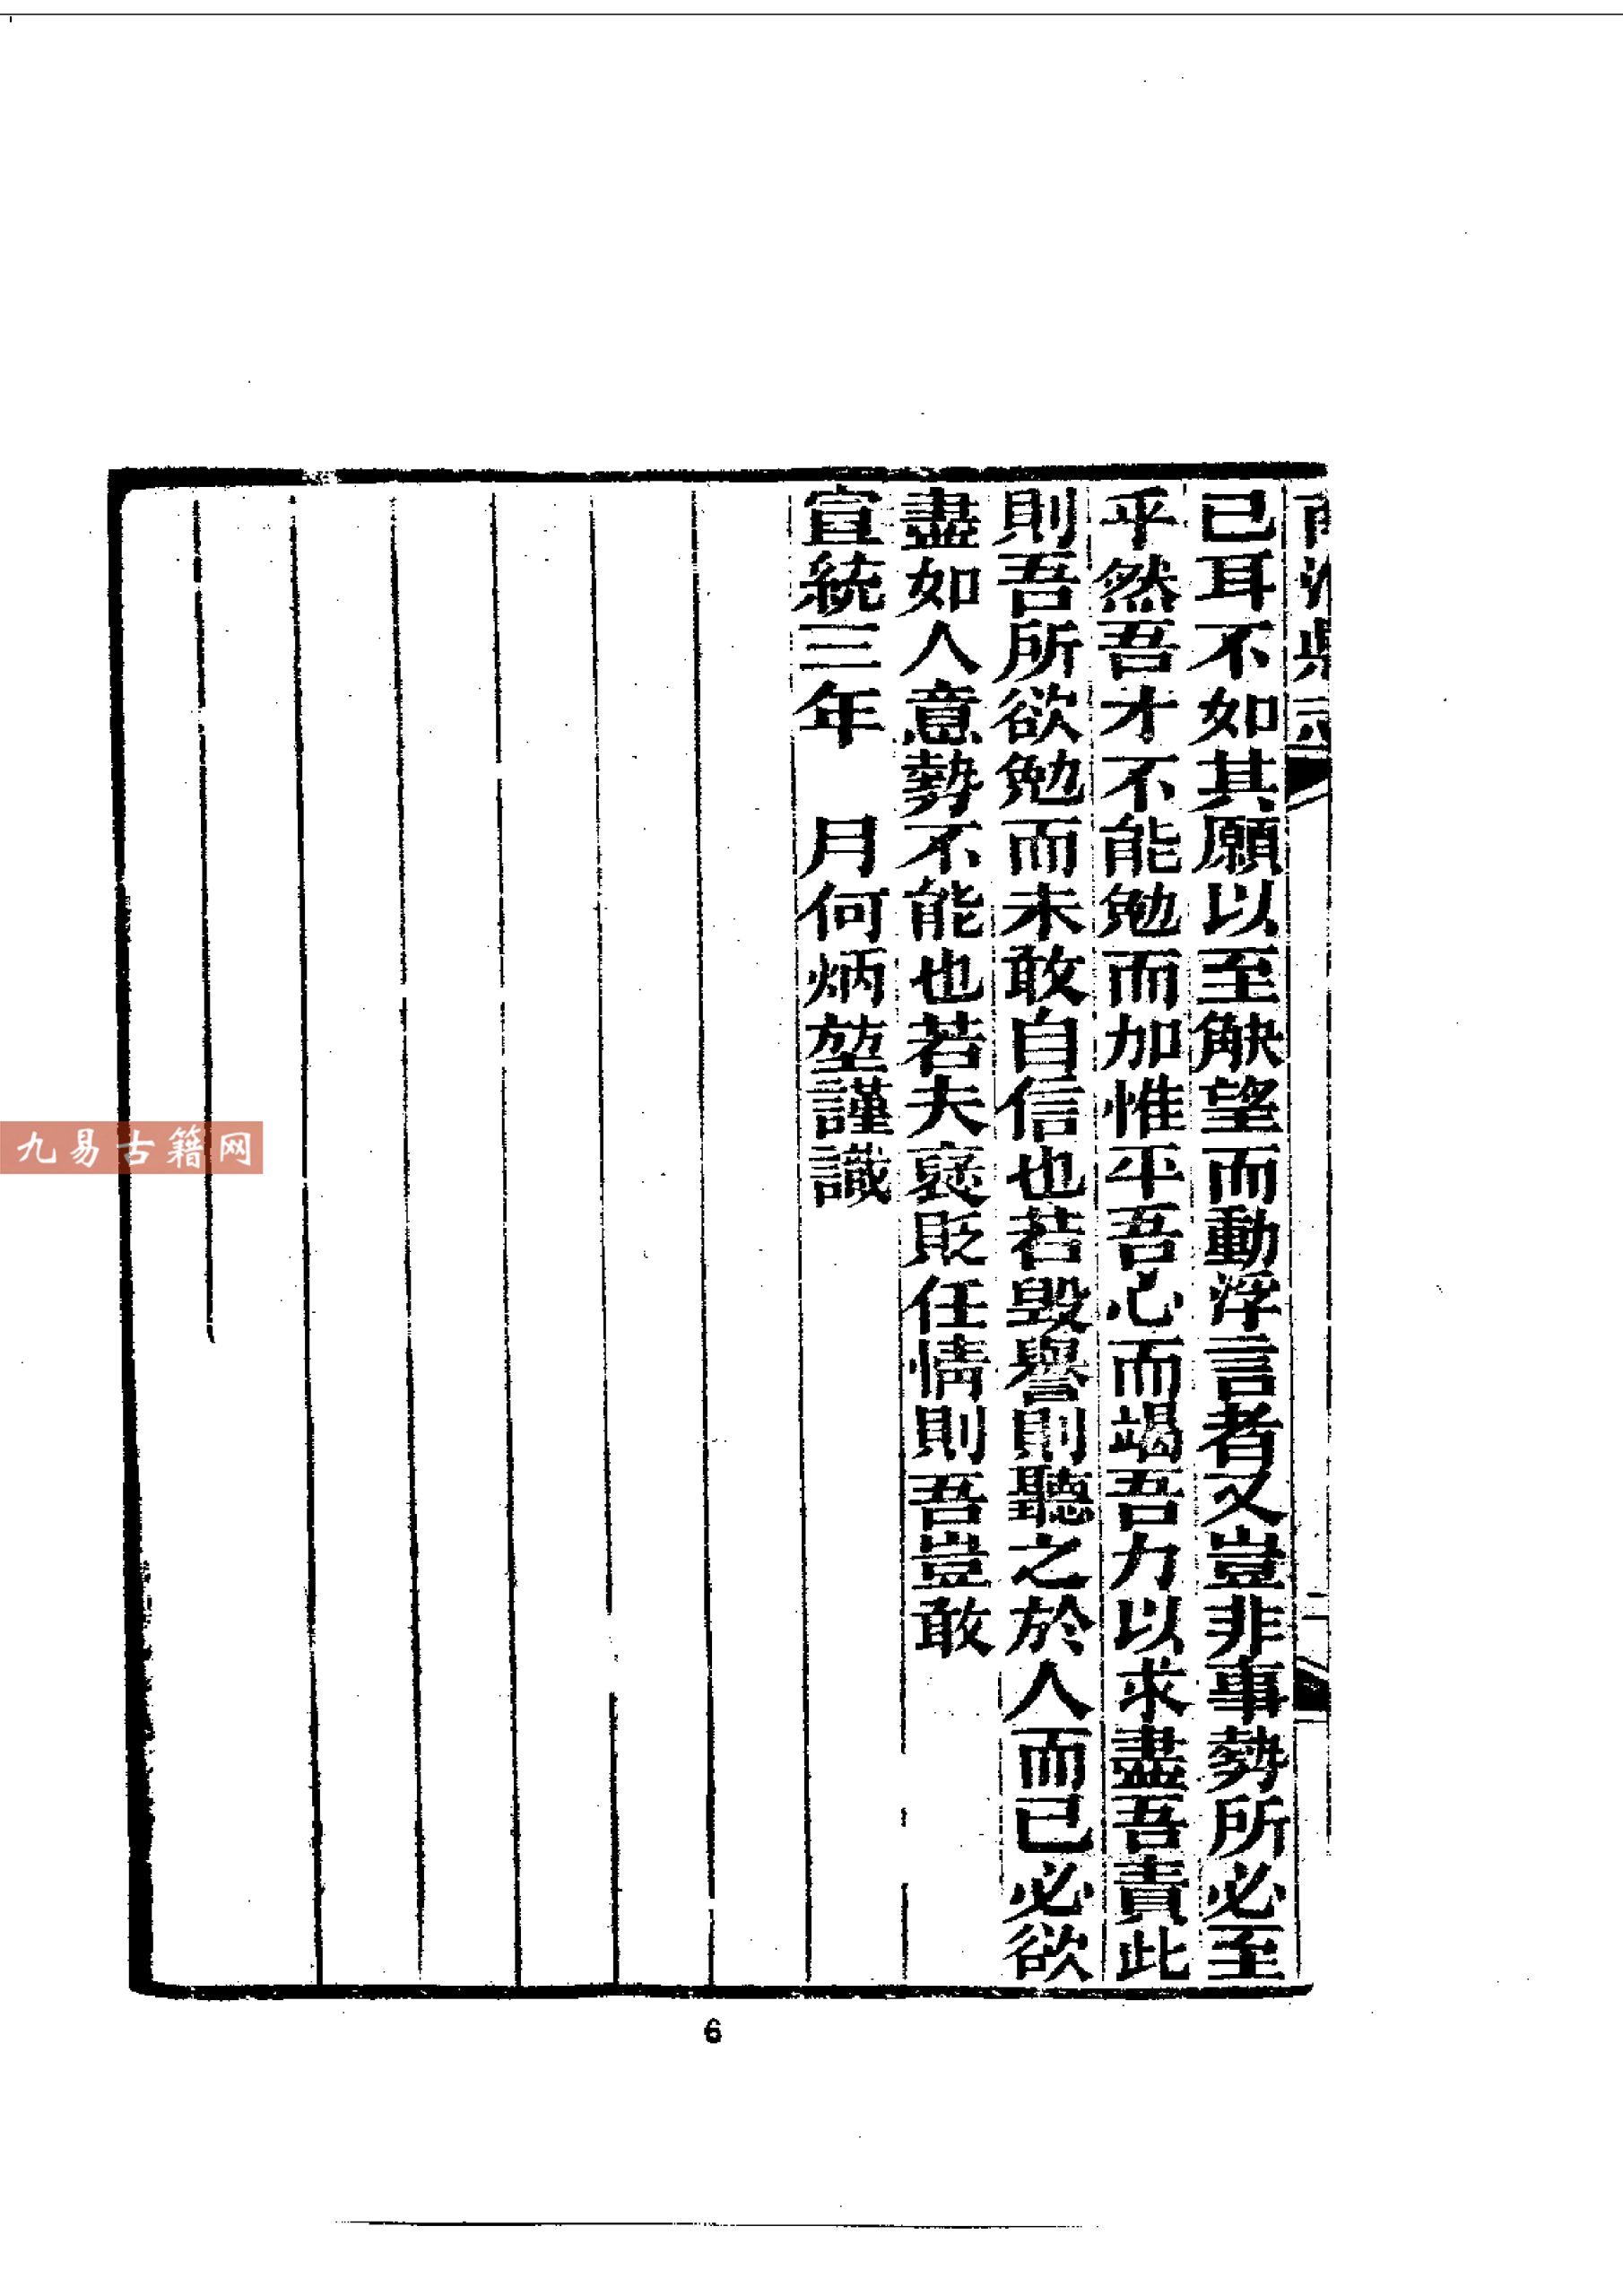 南海縣志
二
已耳不如其願以至觖望而動浮言者又豈非事勢所必至
乎然吾才不能勉而加惟平吾心而竭吾力以求盡吾責此
則吾所欲勉而未敢自信也若毀譽則聽之於人而已必欲
盡如人意勢不能也若夫褒貶任情則吾豈敢
宣統三年　月何炳堃謹識
九易古籍网
6